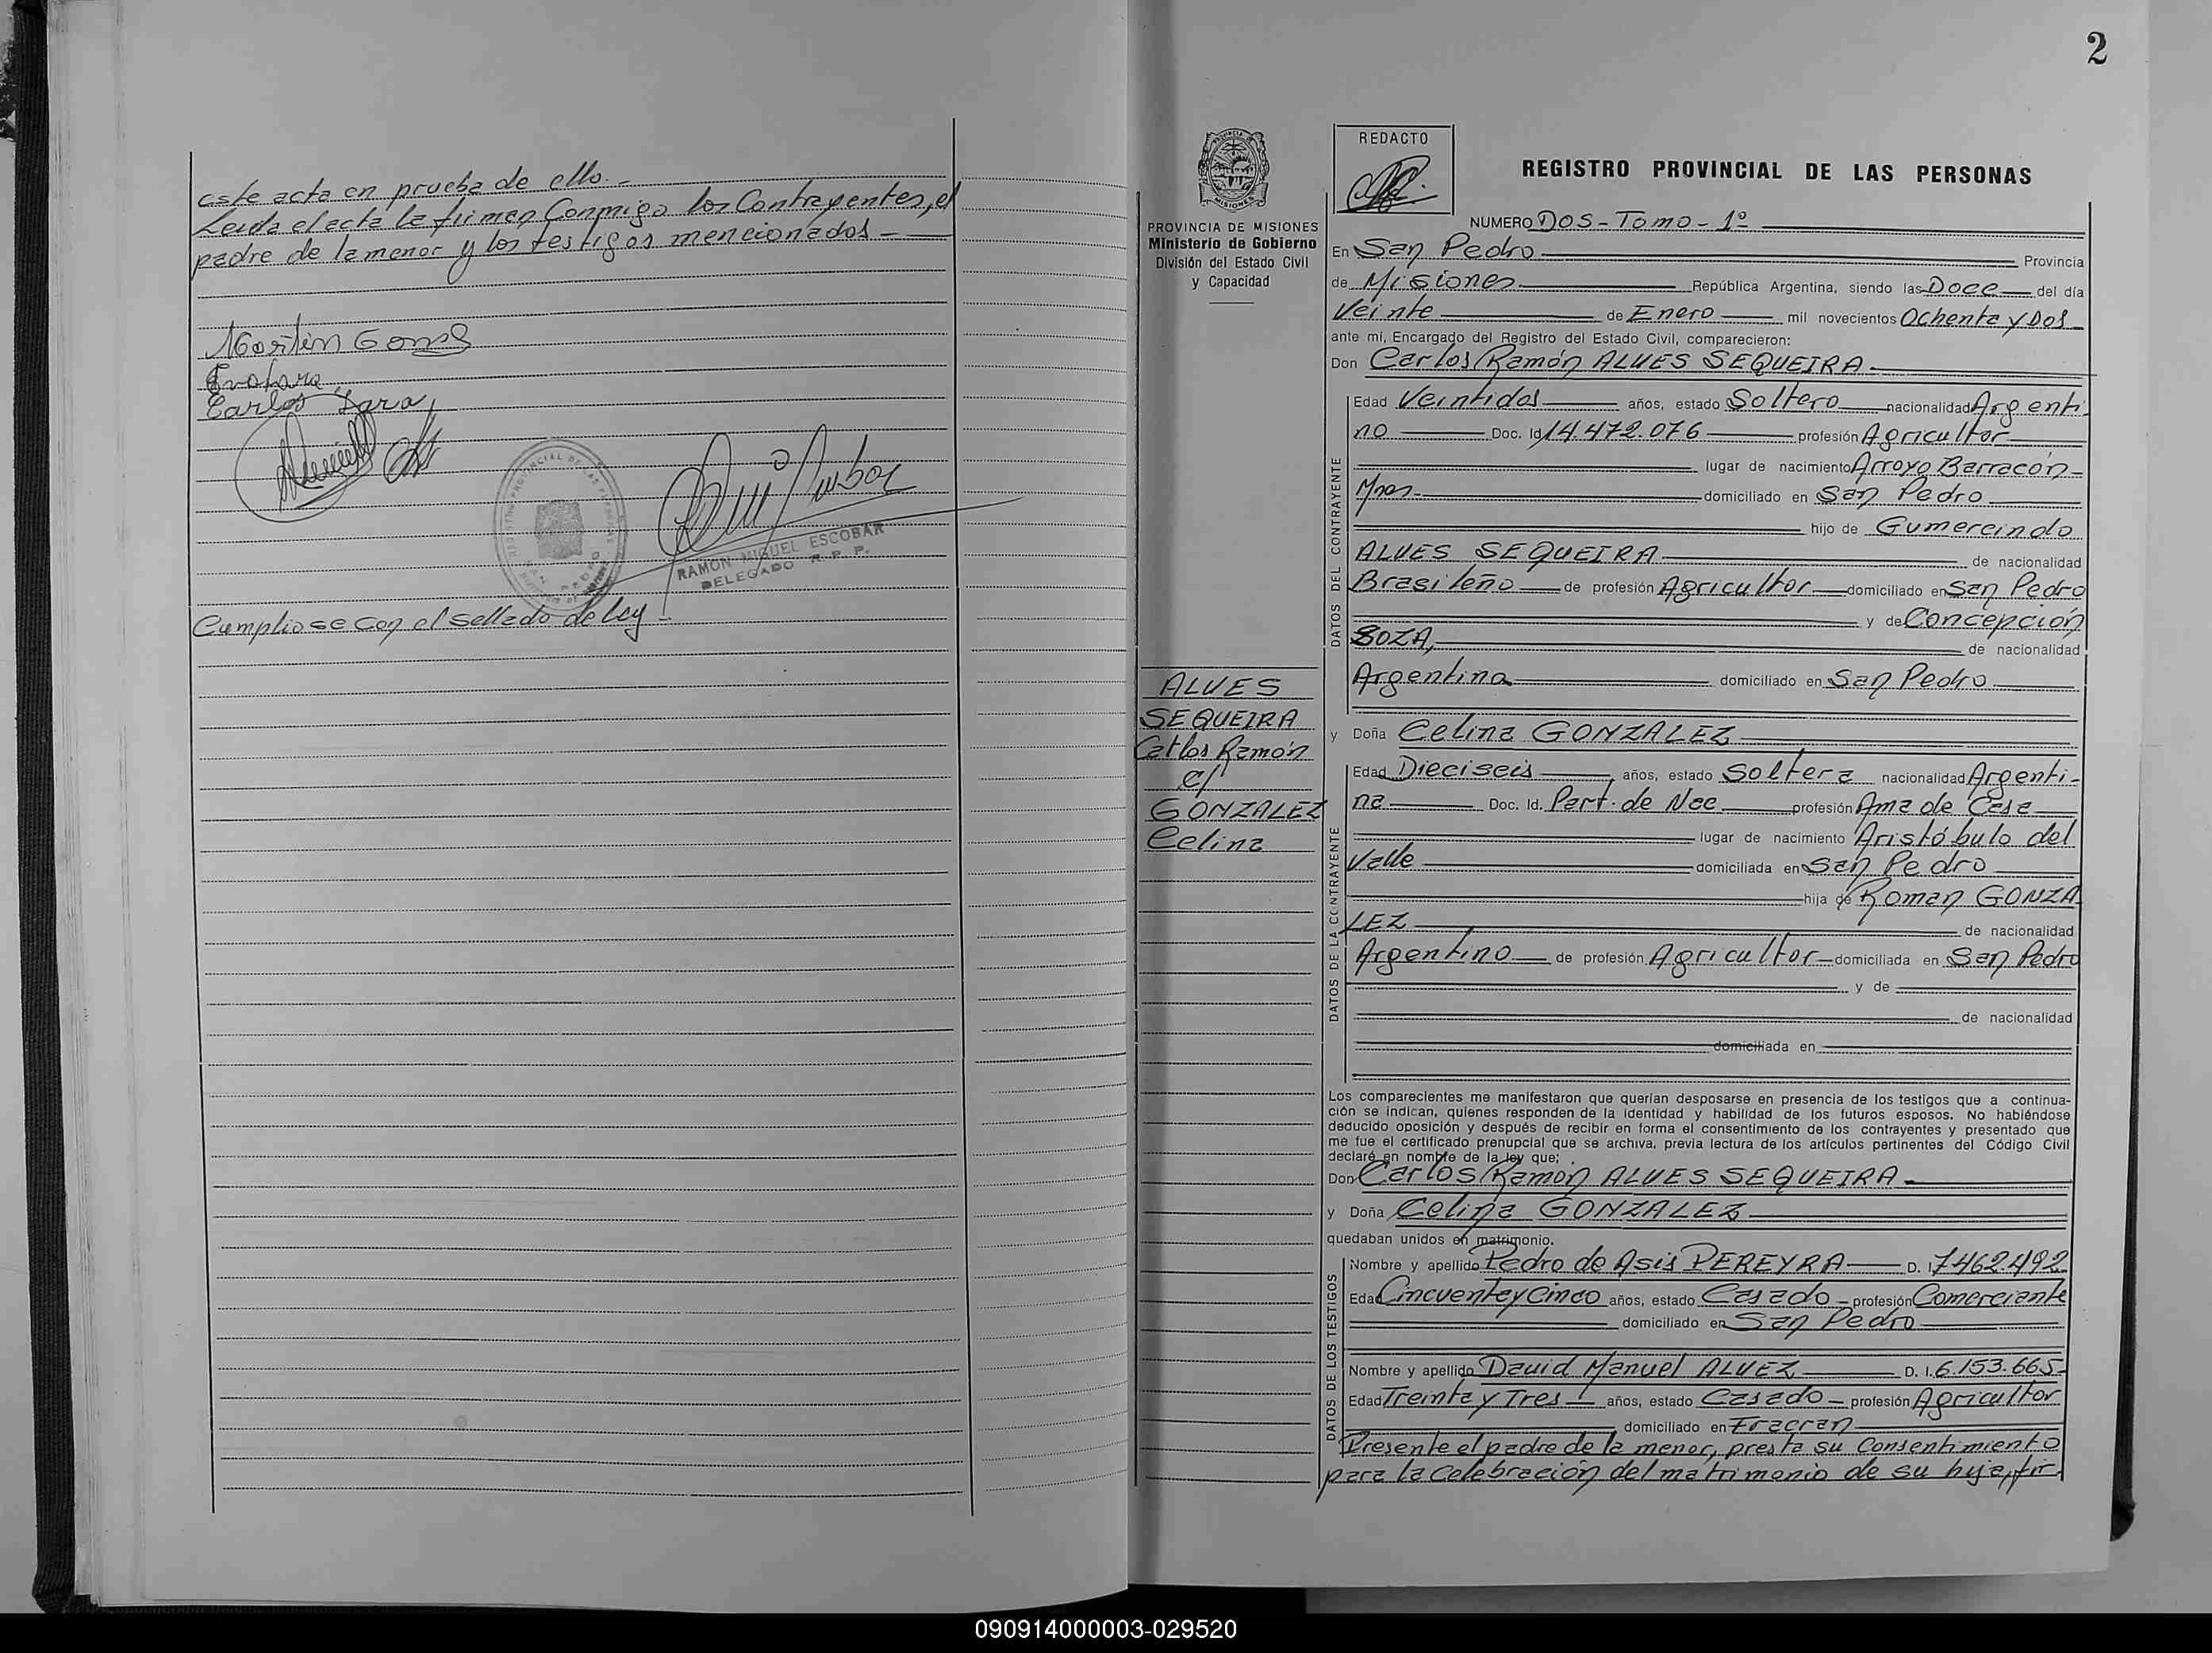 este acta en prueba de ello.-
Leida el acta la firman Conmigo los Contrayentes, el
padre de la menor y los testigos mencionados -
Carlos Jara
RAMON MIGUEL ESCOBAR
DELEGADO R. P. P.
Cumpliose con el sellado de ley -
2
PROVINCIA DE MISIONES
Ministerio de Gobierno
División del Estado Civil
y Capacidad
ALVES
SEQUEIRA
Carlos Ramón
c/
GONZALEZ
Celina
REDACTO
REGISTRO PROVINCIAL DE LAS PERSONAS
NUMERO DOS - Tomo - 1º
En San Pedro Provincia
de Misiones República Argentina, siendo las Doce del día
Veinte de Enero mil novecientos Ochenta y Dos
ante mí, Encargado del Registro del Estado Civil, comparecieron:
Don Carlos Ramón ALVES SEQUEIRA
DATOS DEL CONTRAYENTE
Edad Veintidos años, estado Soltero nacionalidad Argenti-
no Doc. Id 14.472.076 profesión Agricultor
lugar de nacimiento Arroyo Barracón
Mnes. domiciliado en San Pedro
hijo de Gumercindo
ALVES SEQUEIRA de nacionalidad
Brasileño de profesión Agricultor domiciliado en San Pedro
y de Concepción
BOZA, de nacionalidad
Argentina domiciliado en San Pedro
y Doña Celina GONZALEZ
DATOS DE LA CONTRAYENTE
Edad Dieciseis años, estado Soltera nacionalidad Argenti-
na Doc. Id. Part. de Nac profesión Ama de Casa
lugar de nacimiento Aristóbulo del
Valle domiciliada en San Pedro
hija de Roman GONZA
LEZ de nacionalidad
Argentino de profesión Agricultor domiciliada en San Pedro
y de
de nacionalidad
domiciliada en
Los comparecientes me manifestaron que querían desposarse en presencia de los testigos que a continua-
ción se indican, quienes responden de la identidad y habilidad de los futuros esposos. No habiéndose
deducido oposición y después de recibir en forma el consentimiento de los contrayentes y presentado que
me fue el certificado prenupcial que se archiva, previa lectura de los artículos pertinentes del Código Civil
declaré en nombre de la ley que;
Don Carlos Ramón ALVES SEQUEIRA
y Doña Celina GONZALEZ
quedaban unidos en matrimonio.
DATOS DE LOS TESTIGOS
Nombre y apellido Pedro de Asis PEREYRA D. I 7462.492
Edad Cincuenta y Cinco años, estado Casado profesión Comerciante
domiciliado en San Pedro
Nombre y apellido David Manuel ALVEZ D. I. 6.153.665
Edad Treinta y Tres años, estado Casado profesión Agricultor
domiciliado en Fracran
Presente el padre de la menor, presta su Consentimiento
para la celebración del matrimonio de su hija, fir
090914000003-029520